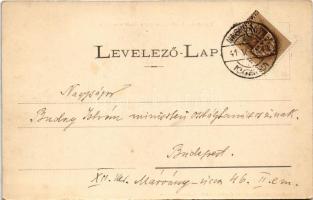 LEVELEZŐ-LAP
Nagyságos
István miniszteri osztálytanácsosnak.
Budapest.
XII. ker. Márvány-utca 46. II. em.